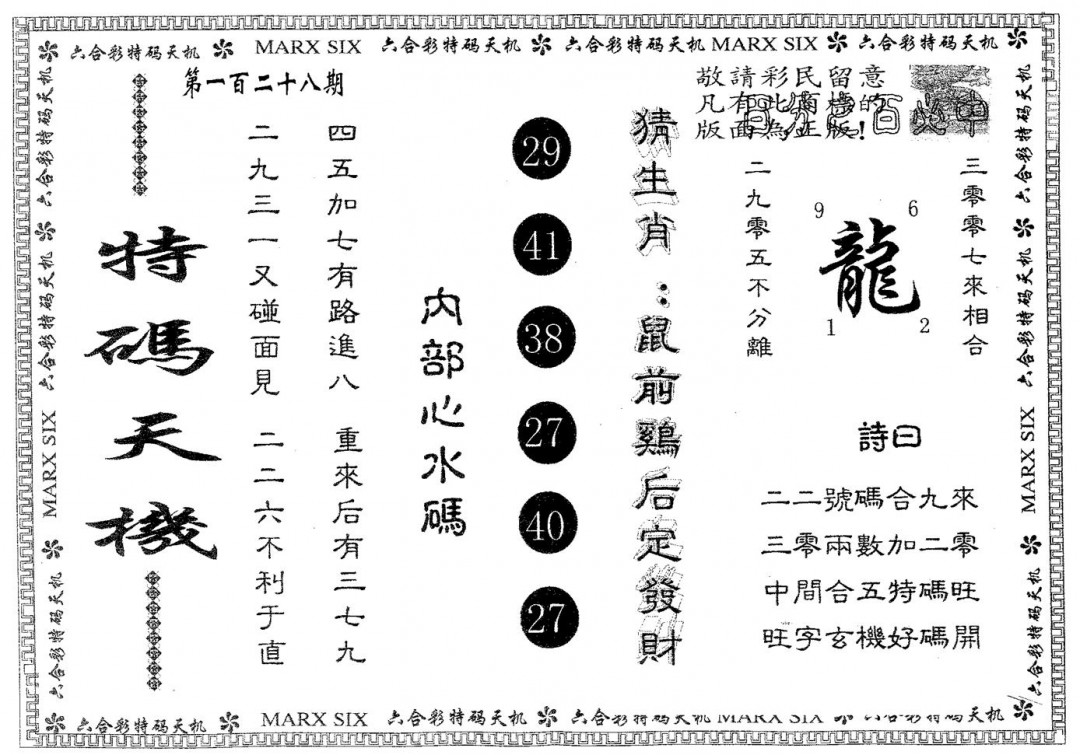 六合彩特码天机 MARX SIX 六合彩特码天机 六合彩特码天机 MARX SIX 六合彩特码天机
第一百二十八期
敬請彩民留意
凡有此商標的
版面為正版!
百分之百必中
三零零七來相合
9 6
龍
1 2
二九零五不分離
詩曰
二二號碼合九來
三零兩數加二零
中間合五特碼旺
旺字玄機好碼開
猜生肖：鼠前鷄后定發財
29
41
38
27
40
27
内部心水碼
四五加七有路進八 重來后有三七九
二九三一又碰面見 二二六不利于直
特碼天機
六合彩特码天机 六合彩特码天机 MARX SIX 六合彩特码天机
六合彩特码天机 六合彩特码天机 MARX SIX 六合彩特码天机
六合彩特码天机 MARX SIX 六合彩特码天机 六合彩特码天机 MARX SIX 六合彩特码天机